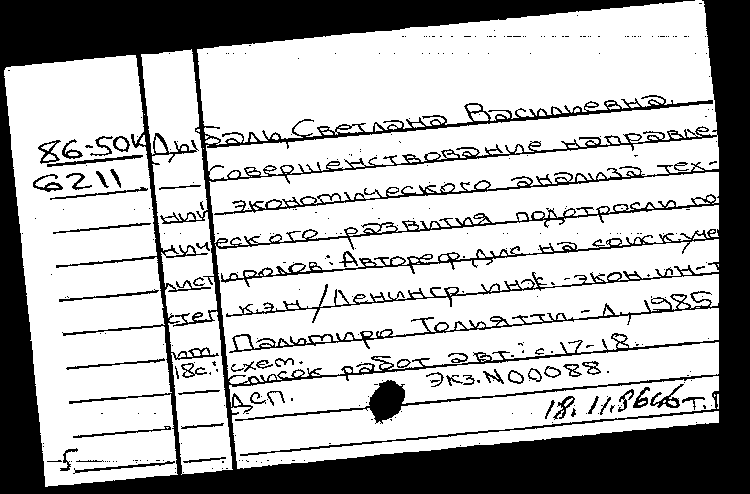 86-50к Дыбаль, Светлана Васильевна.
6211 Совершенствование направле-
ний экономического анализа тех-
нического развития подотрасли по-
листиролов: Автореф. дис на соиск. уче
степ. к.э.н / Ленингр. инж.-экон. ин-т
им. Пальмиро Тольятти. - Л., 1985
18с.: схем.
Список работ авт.: с. 17-18.
ДСП. Экз. N00088.
18.11.86
5